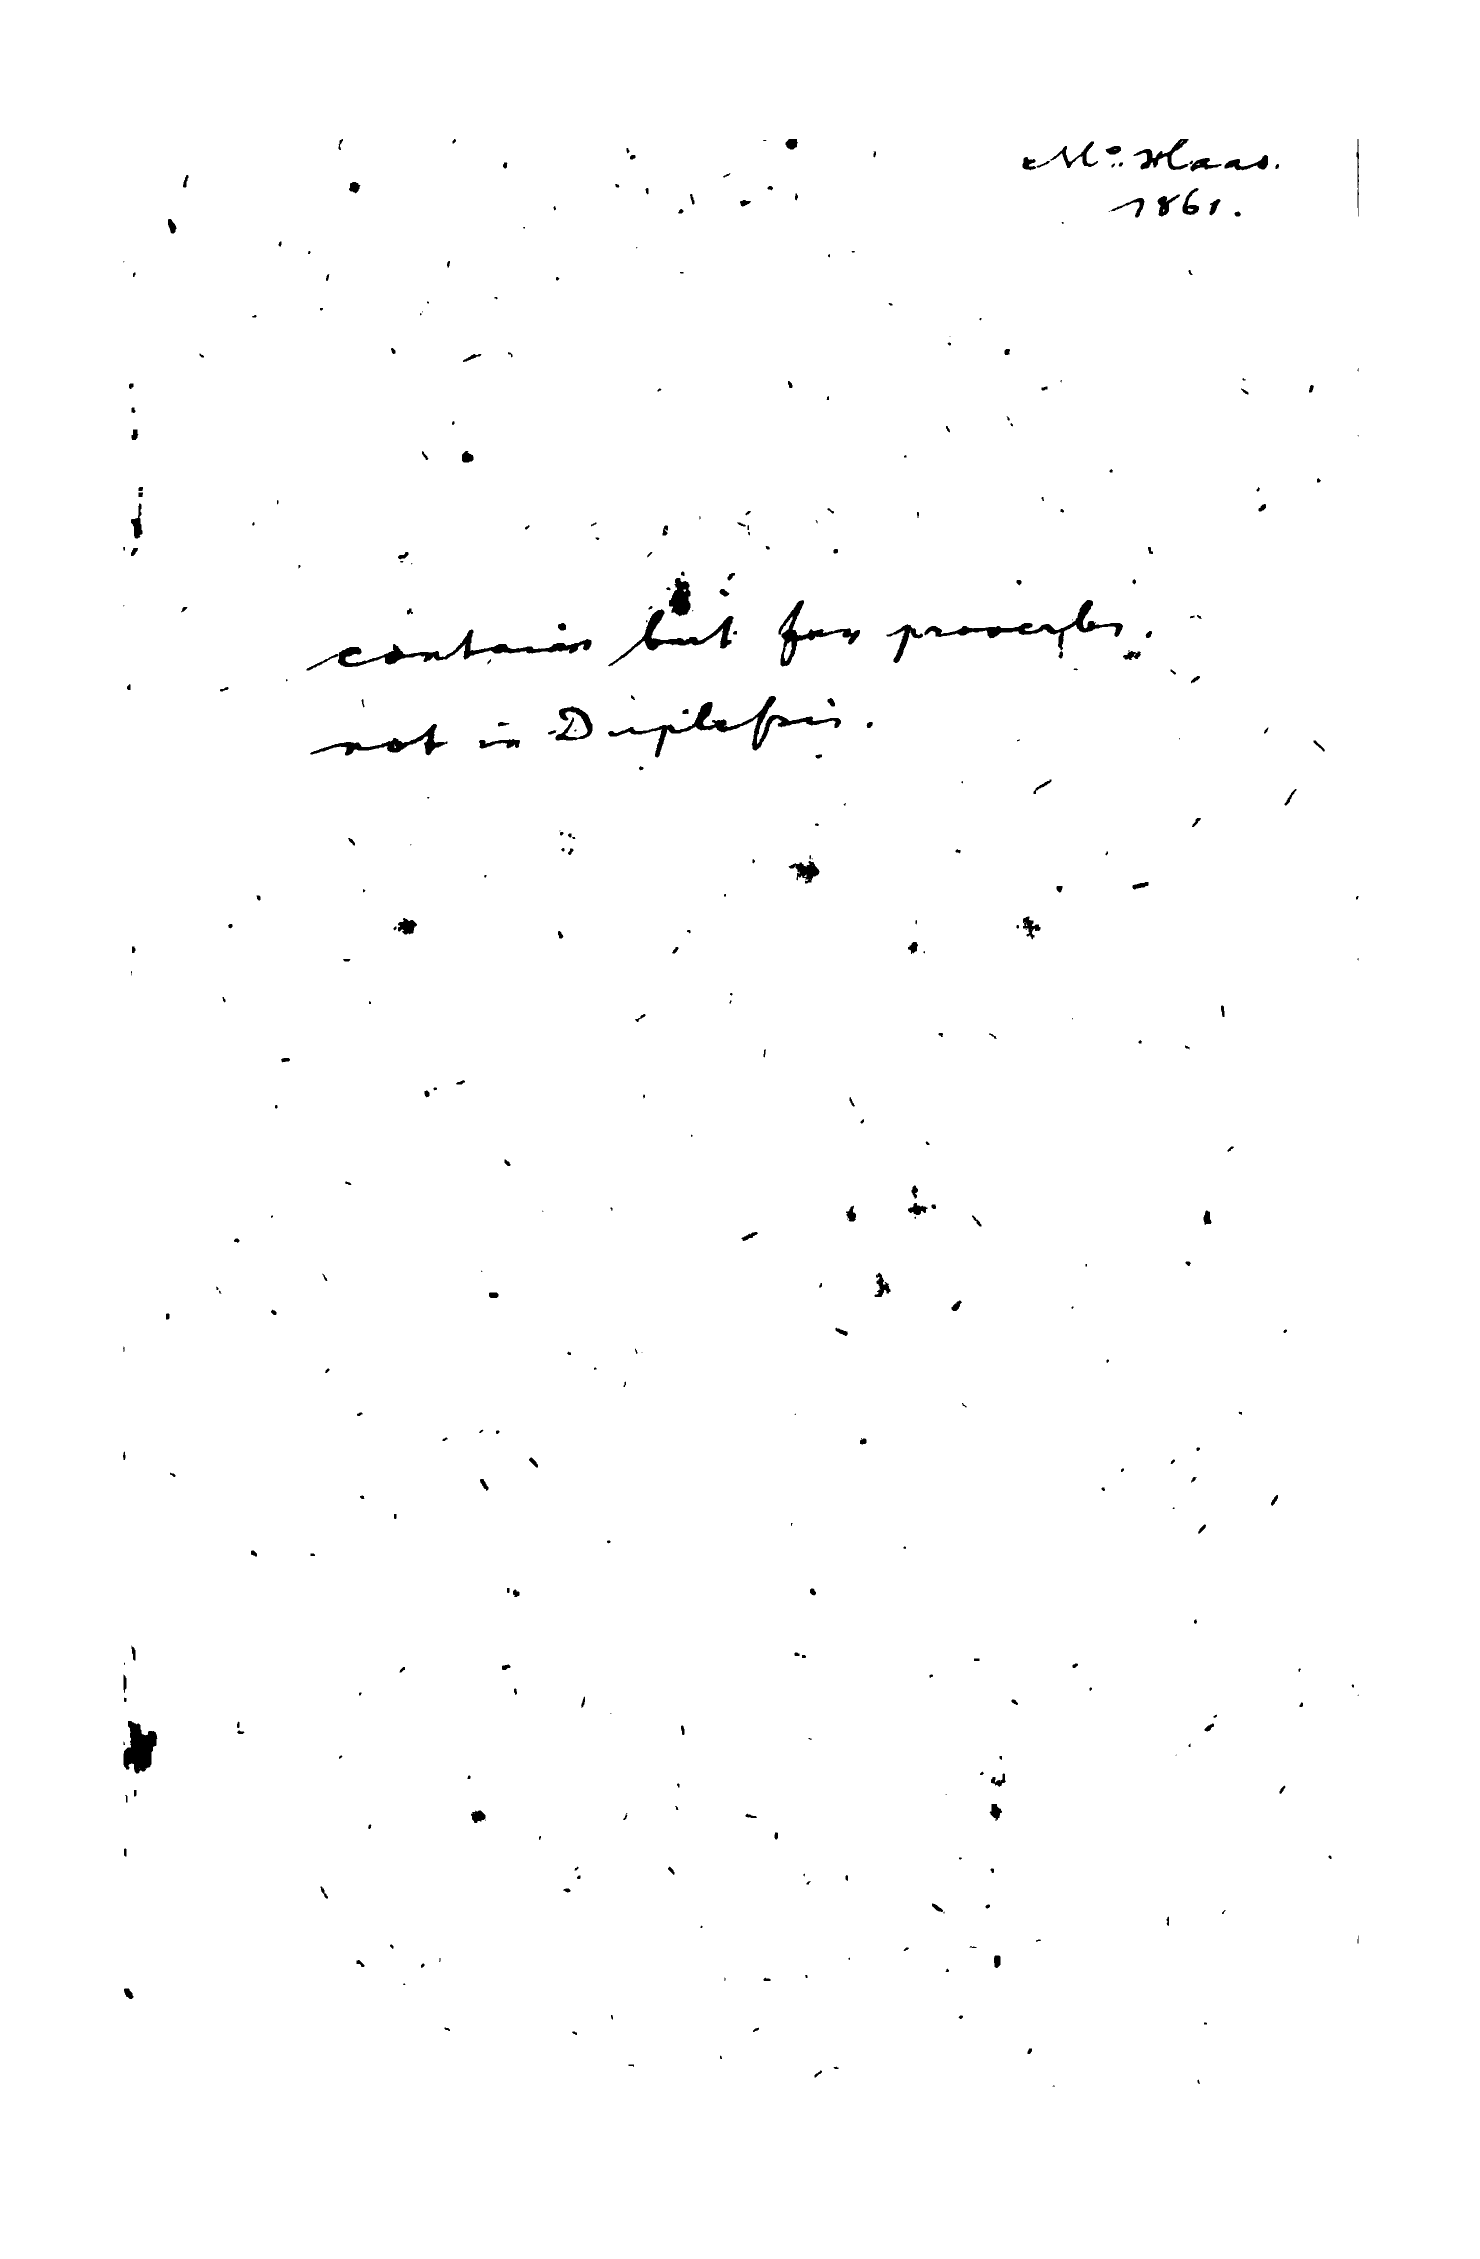 Mo. Haas.
1861.
contains but few proverbs.
not in Duplessis.